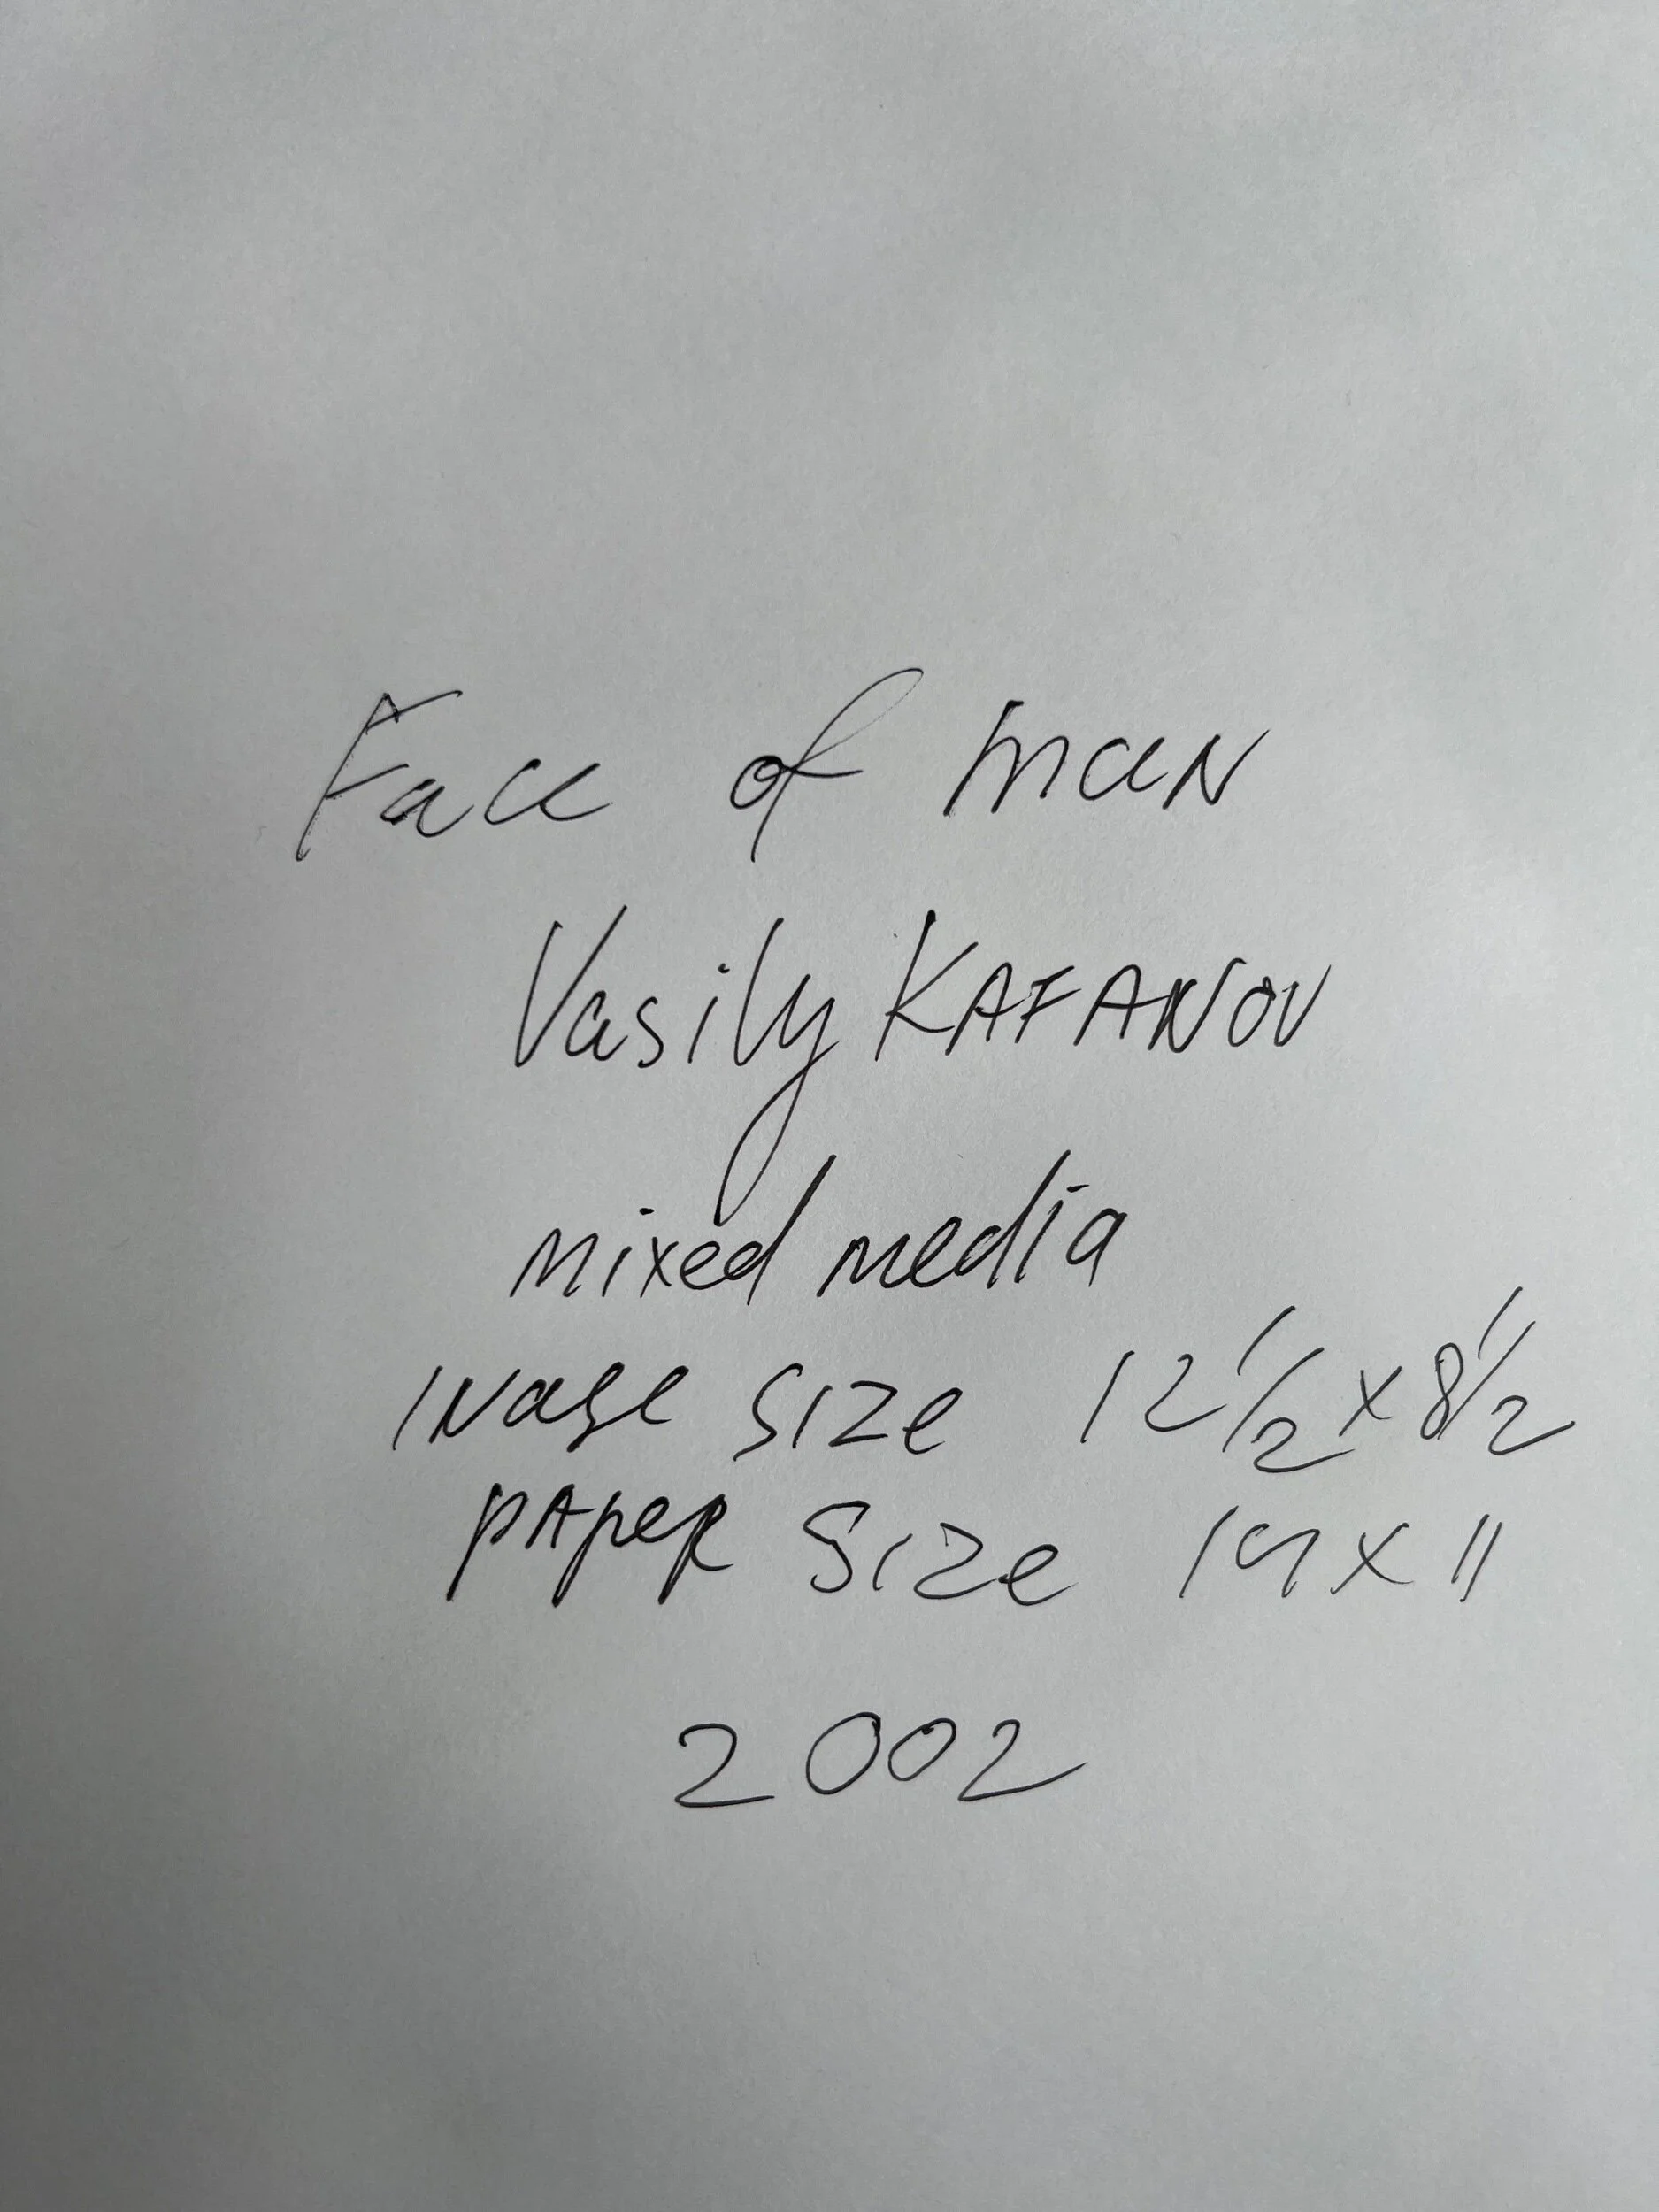 Face of man
Vasily KAFANOV
mixed media
image size 12 1/2 x 8 1/2
paper size 14 x 11
2002